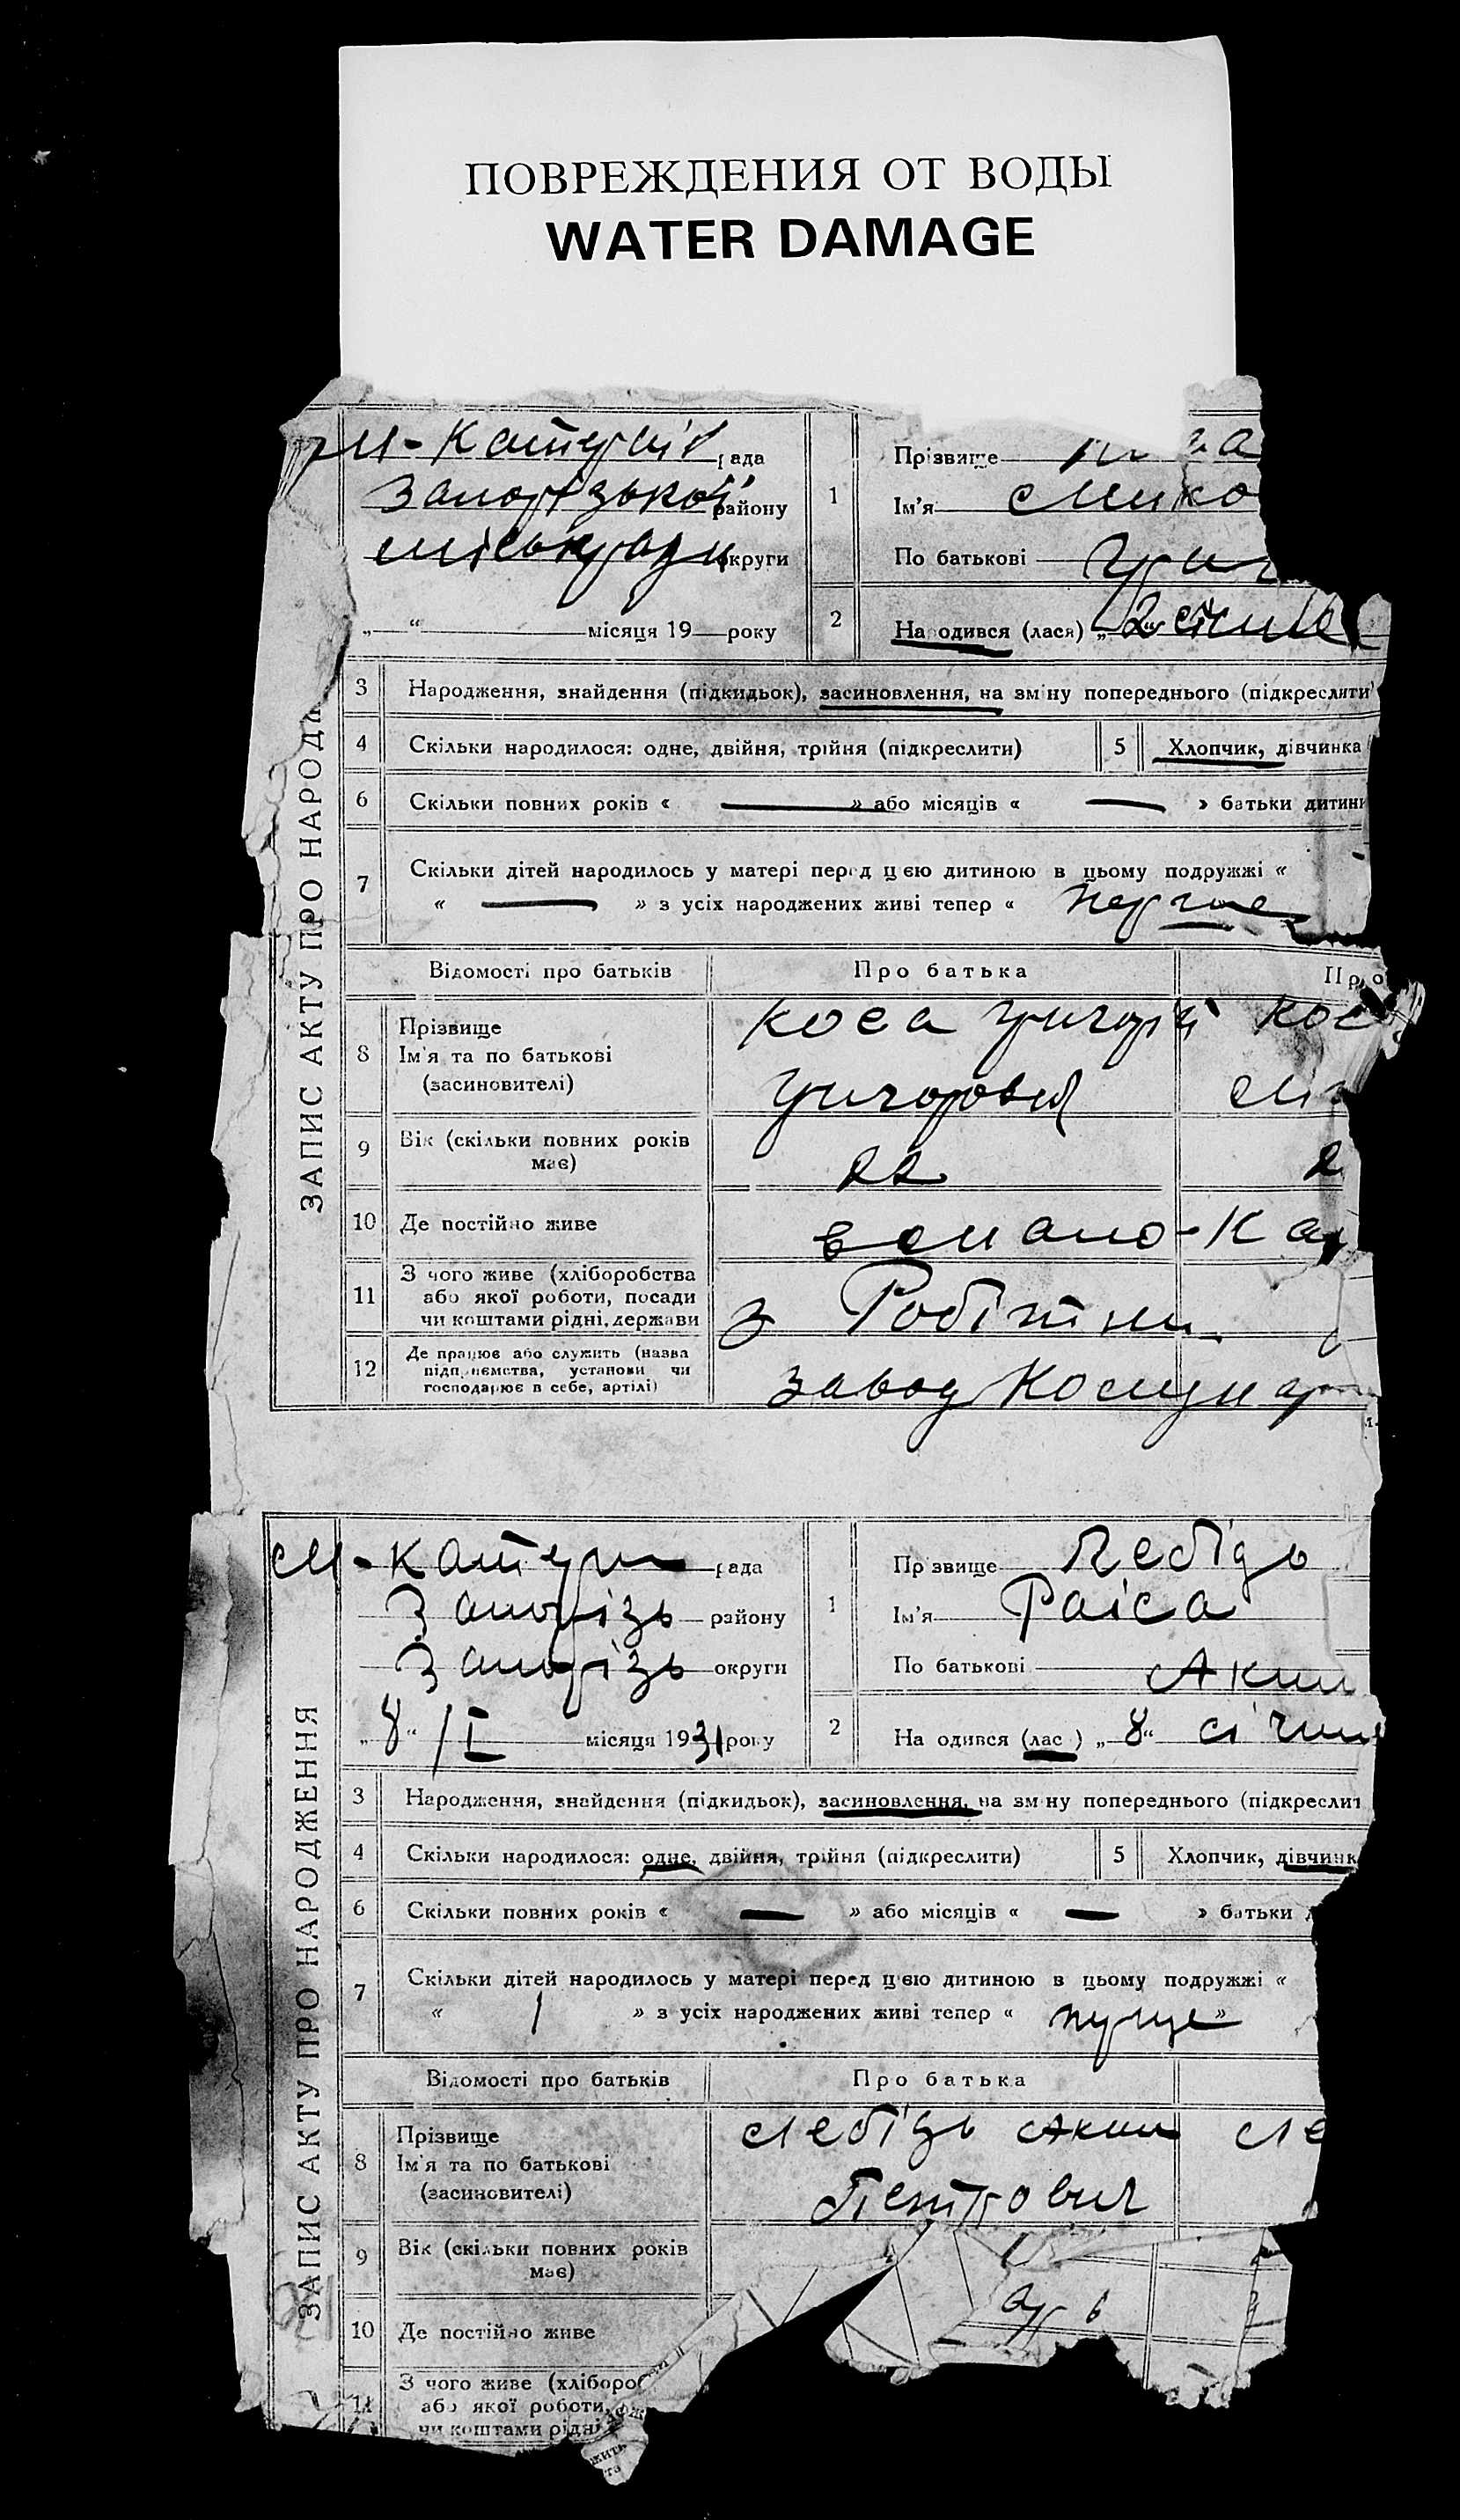 ПОВРЕЖДЕНИЯ ОТ ВОДЫ
WATER DAMAGE
ЗАПИС АКТУ ПРО НАРОД
м-Катерин рада
Запорізької району
міськради округи
„ “ місяця 19 року
1
Прізвище
Ім'я Мико
По батькові Григ
2
Народився (лася) „2“ січня
3 Народження, знайдення (підкидьок), засиновлення, на зміну попереднього (підкреслити
4 Скільки народилося: одне, двійня, трійня (підкреслити) 5 Хлопчик, дівчинка
6 Скільки повних років « — » або місяців « — » батьки дитини
7 Скільки дітей народилось у матері перед цією дитиною в цьому подружжі «
« — » з усіх народжених живі тепер « перше
Відомості про батьків Про батька Про
8 Прізвище
Ім'я та по батькові
(засиновителі)
Коса Григорій Кос
Григорович
9 Вік (скільки повних років має) 22 2
10 Де постійно живе в мало-Ка
11 З чого живе (хліборобства або якої роботи, посади чи коштами рідні, держави
з Робітни
12 Де працює або служить (назва підприємства, установи чи господарює в себе, артілі)
завод Комунар
ЗАПИС АКТУ ПРО НАРОДЖЕННЯ
м-Катери рада
Запорізь району
Запорізь округи
„8“ /I місяця 1931 року
1
Прізвище Лебідь
Ім'я Раіса
По батькові Аким
2
Народився (лася) „8“ січня
3 Народження, знайдення (підкидьок), засиновлення, на зміну попереднього (підкреслит
4 Скільки народилося: одне, двійня, трійня (підкреслити) 5 Хлопчик, дівчинк
6 Скільки повних років « — » або місяців « — » батьки
7 Скільки дітей народилось у матері перед цією дитиною в цьому подружжі «
« 1 » з усіх народжених живі тепер « »
Відомості про батьків Про батька
8 Прізвище
Ім'я та по батькові
(засиновителі)
Лебідь Аким Ле
Петрович
9 Вік (скільки повних років має)
10 Де постійно живе
11 З чого живе (хлібороб
або якої роботи,
чи коштами рідні